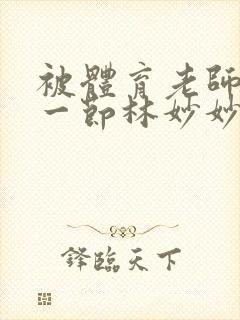 被體育老師
一節林妙妙
鋒臨天下